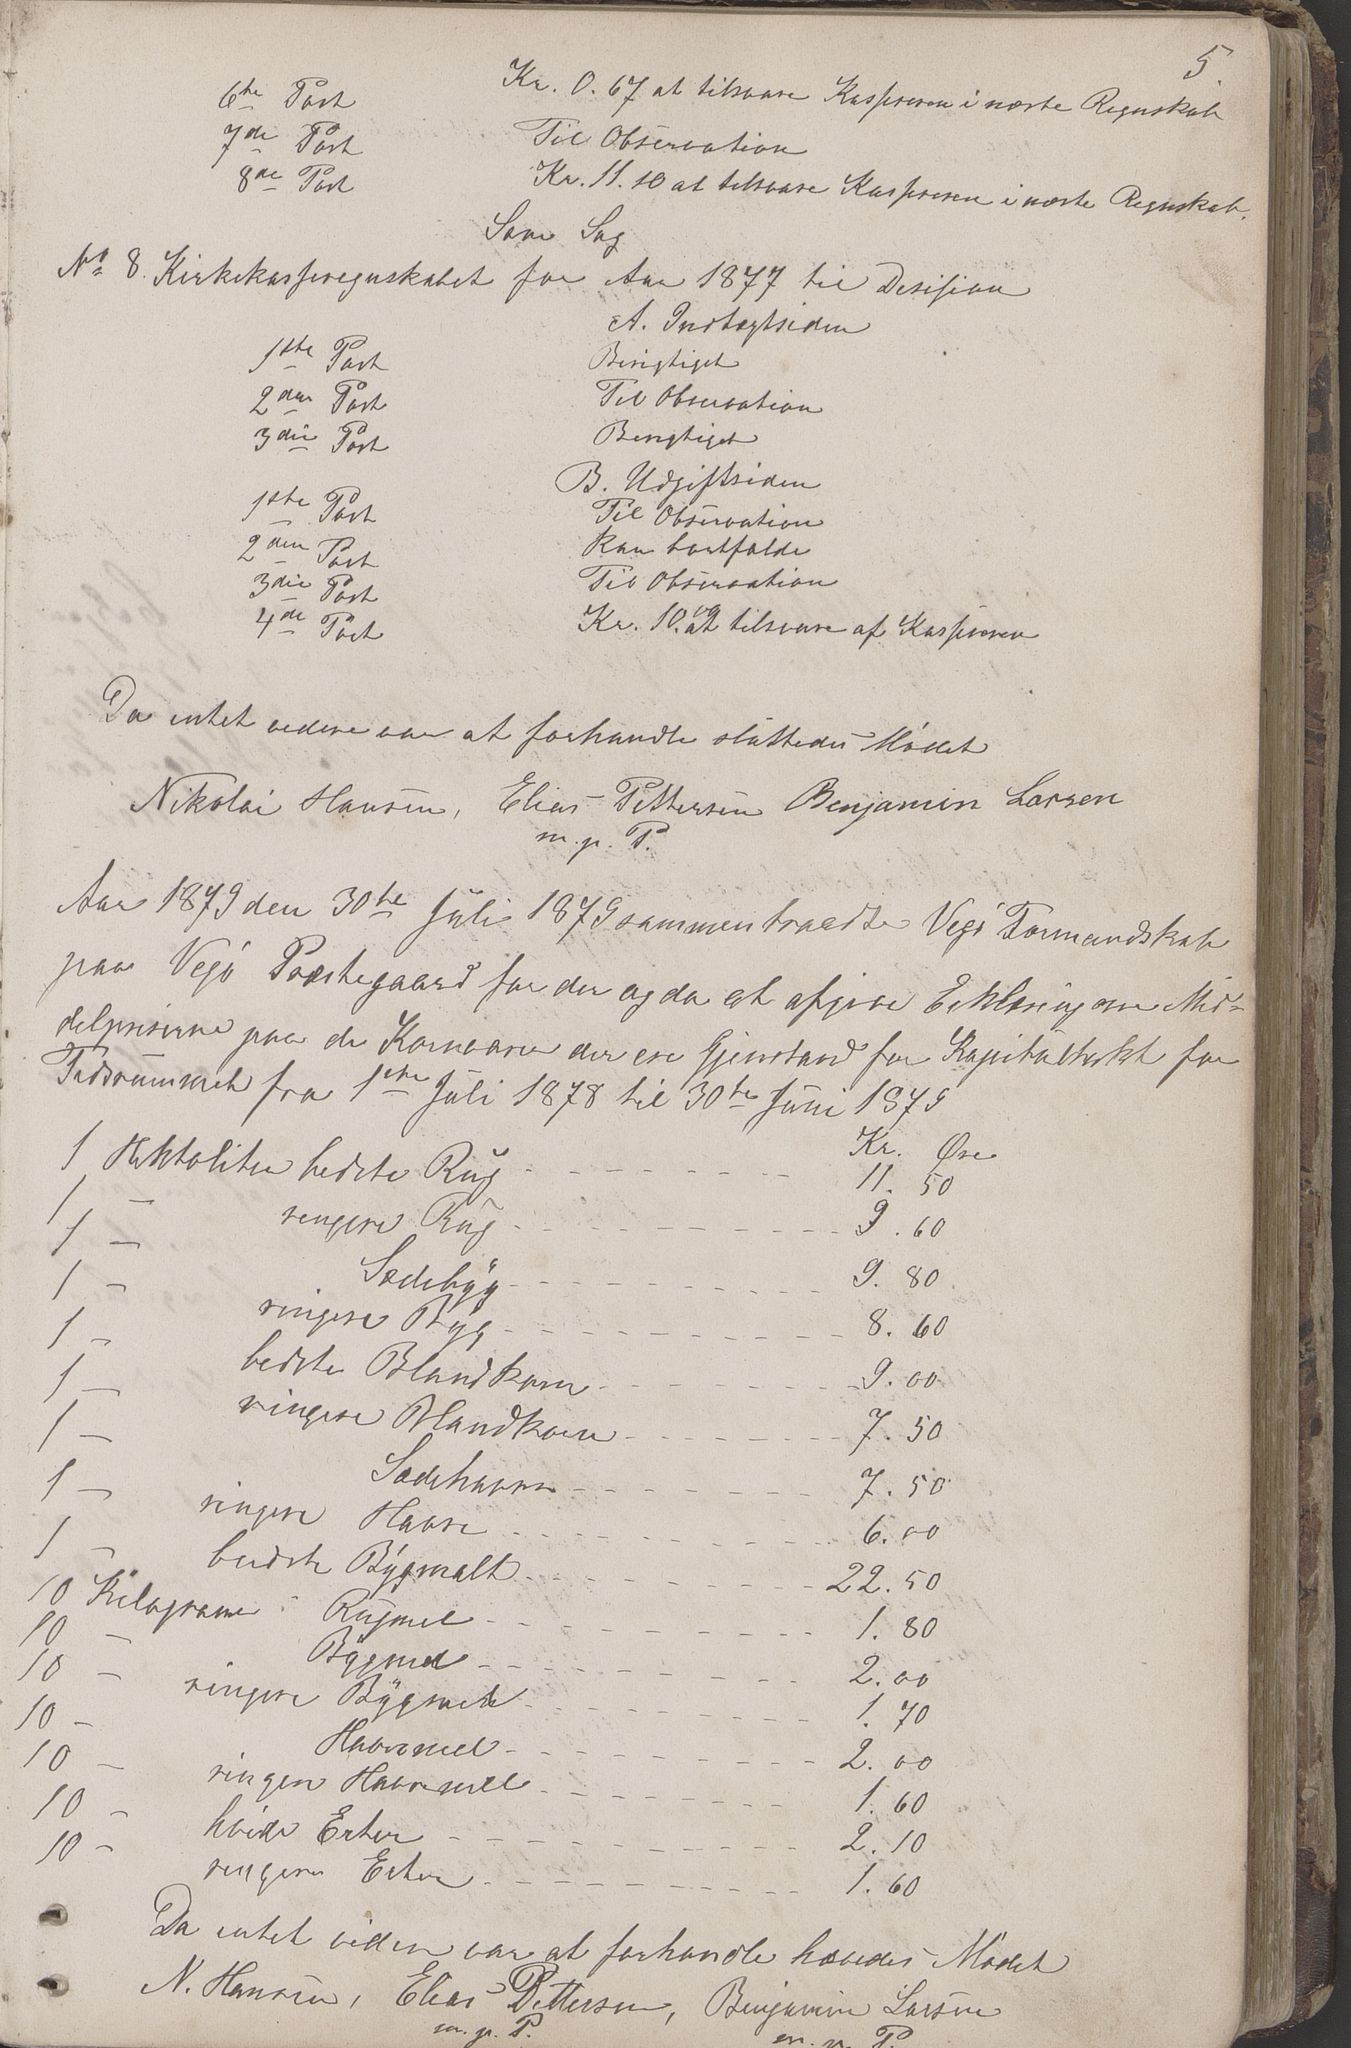 5.
6te Post Kr. 0.67 at tilsvare Kassereren i næste Regnskab
7de Post Til Observation
8de Post Kr. 11.10 at tilsvare Kassereren i næste Regnskab.
Som Sag
No 8. Kirkekasseregnskabet for Aar 1877 til Desision
A. Indtægtsiden
1ste Post Berigtiget
2den Post Til Observation
3die Post Berigtiget
B. Udgiftsiden
1ste Post Til Observation
2den Post kan bortfalde
3die Post Til Observation
4de Post Kr. 10.09 at tilsvare af Kassereren
Da intet videre var at forhandle sluttedes Mødet
Nikolai Hansen, Elias Pettersen Benjamin Larsen
m. p. P.
Aar 1879 den 30te Juli 1879 sammentraadte Vegø Formandskab
paa Vegø Præstegaard for der og da at afgive Erklæring om Mid-
delpriserne paa de Kornvarer der ere Gjenstand for Kapitultakst for
Tidsrummet fra 1ste Juli 1878 til 30te Juni 1879
Kr. Øre
1 Hektoliter bedste Rug 11.50
1 — ringere Rug 9.60
1 — Sædebyg 9.80
1 — ringere Byg 8.60
1 — bedste Blandkorn 9.00
1 — ringere Blandkorn 7.50
1 — Sædehavre 7.50
1 — ringere Havre 6.00
1 — bedste Bygmalt 22.50
10 Kilogram Rugmel 1.80
10 — Bygmel 2.00
10 — ringere Bygmel 1.70
10 — Havremel 2.00
10 — ringere Havremel 1.60
10 — hvide Erter 2.10
10 — ringere Erter 1.60
Da intet videre var at forhandle hævedes Mødet
N. Hansen, Elias Pettersen, Benjamin Larsen
m. p. P. m. p. P.